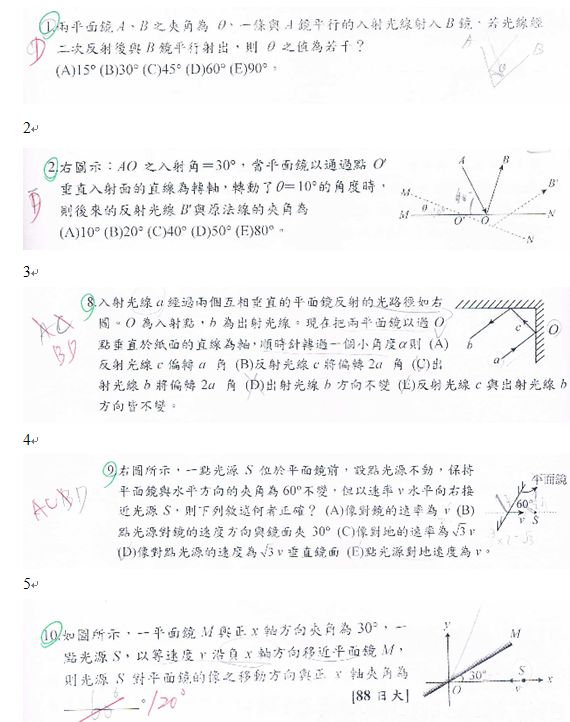 1.兩平面鏡 A、B 之夾角為 θ,一條與 A 鏡平行的入射光線射入 B 鏡,若光線經
二次反射後與 B 鏡平行射出,則 θ 之值為若干?
(A)15° (B)30° (C)45° (D)60° (E)90°。
D
A
B
θ
2
2.右圖示:AO 之入射角=30°,當平面鏡以通過點 O'
垂直入射面的直線為轉軸,轉動了θ=10°的角度時,
則後來的反射光線 B'與原法線的夾角為
(A)10° (B)20° (C)40° (D)50° (E)80°。
D
A
B
B'
M
M
θ
O'
O
N
N
3
8.入射光線 a 經過兩個互相垂直的平面鏡反射的光路徑如右
圖。O 為入射點,b 為出射光線。現在把兩平面鏡以過 O
點垂直於紙面的直線為軸,順時針轉過一個小角度α則 (A)
反射光線 c 偏轉 α 角 (B)反射光線 c 將偏轉 2α 角 (C)出
射光線 b 將偏轉 2α 角 (D)出射光線 b 方向不變 (E)反射光線 c 與出射光線 b
方向皆不變。
AC
BD
c
O
b
a
4
9.右圖所示,一點光源 S 位於平面鏡前,設點光源不動,保持
平面鏡與水平方向的夾角為 60°不變,但以速率 v 水平向右接
近光源 S,則下列敘述何者正確? (A)像對鏡的速率為 v (B)
點光源對鏡的速度方向與鏡面夾 30° (C)像對地的速率為 √3 v
(D)像對點光源的速度為 √3 v 垂直鏡面 (E)點光源對地速度為 v。
ACBD
平面鏡
60°
v
S
5
10.如圖所示,一平面鏡 M 與正 x 軸方向夾角為 30°,一
點光源 S,以等速度 v 沿負 x 軸方向移近平面鏡 M,
則光源 S 對平面鏡的像之移動方向與正 x 軸夾角為
° [88 日大]
120°
y
M
30°
S
O
v
x